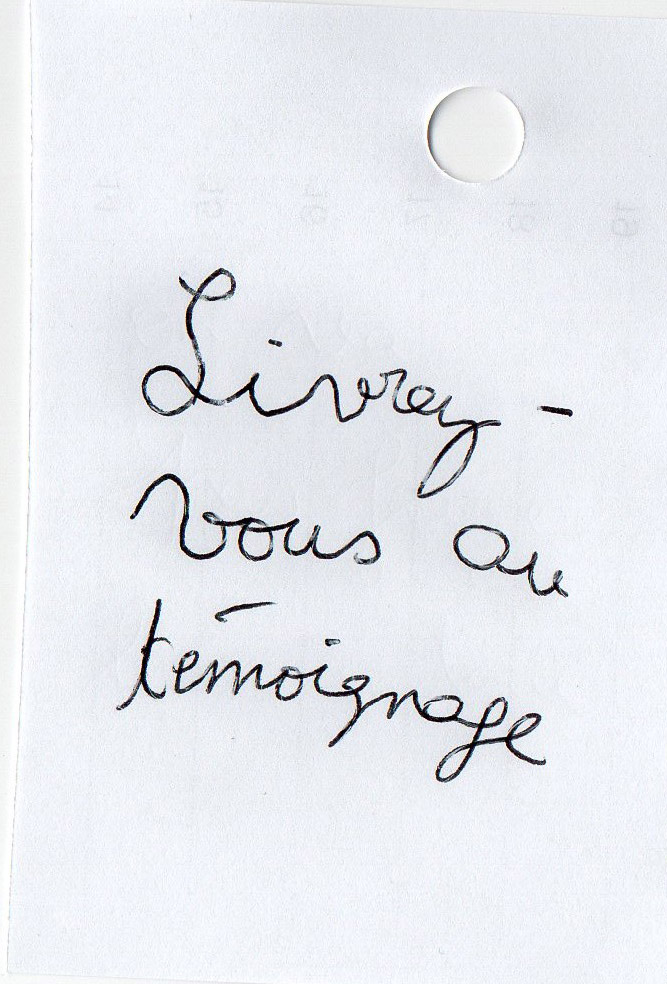 Livrez-
vous au
témoignage